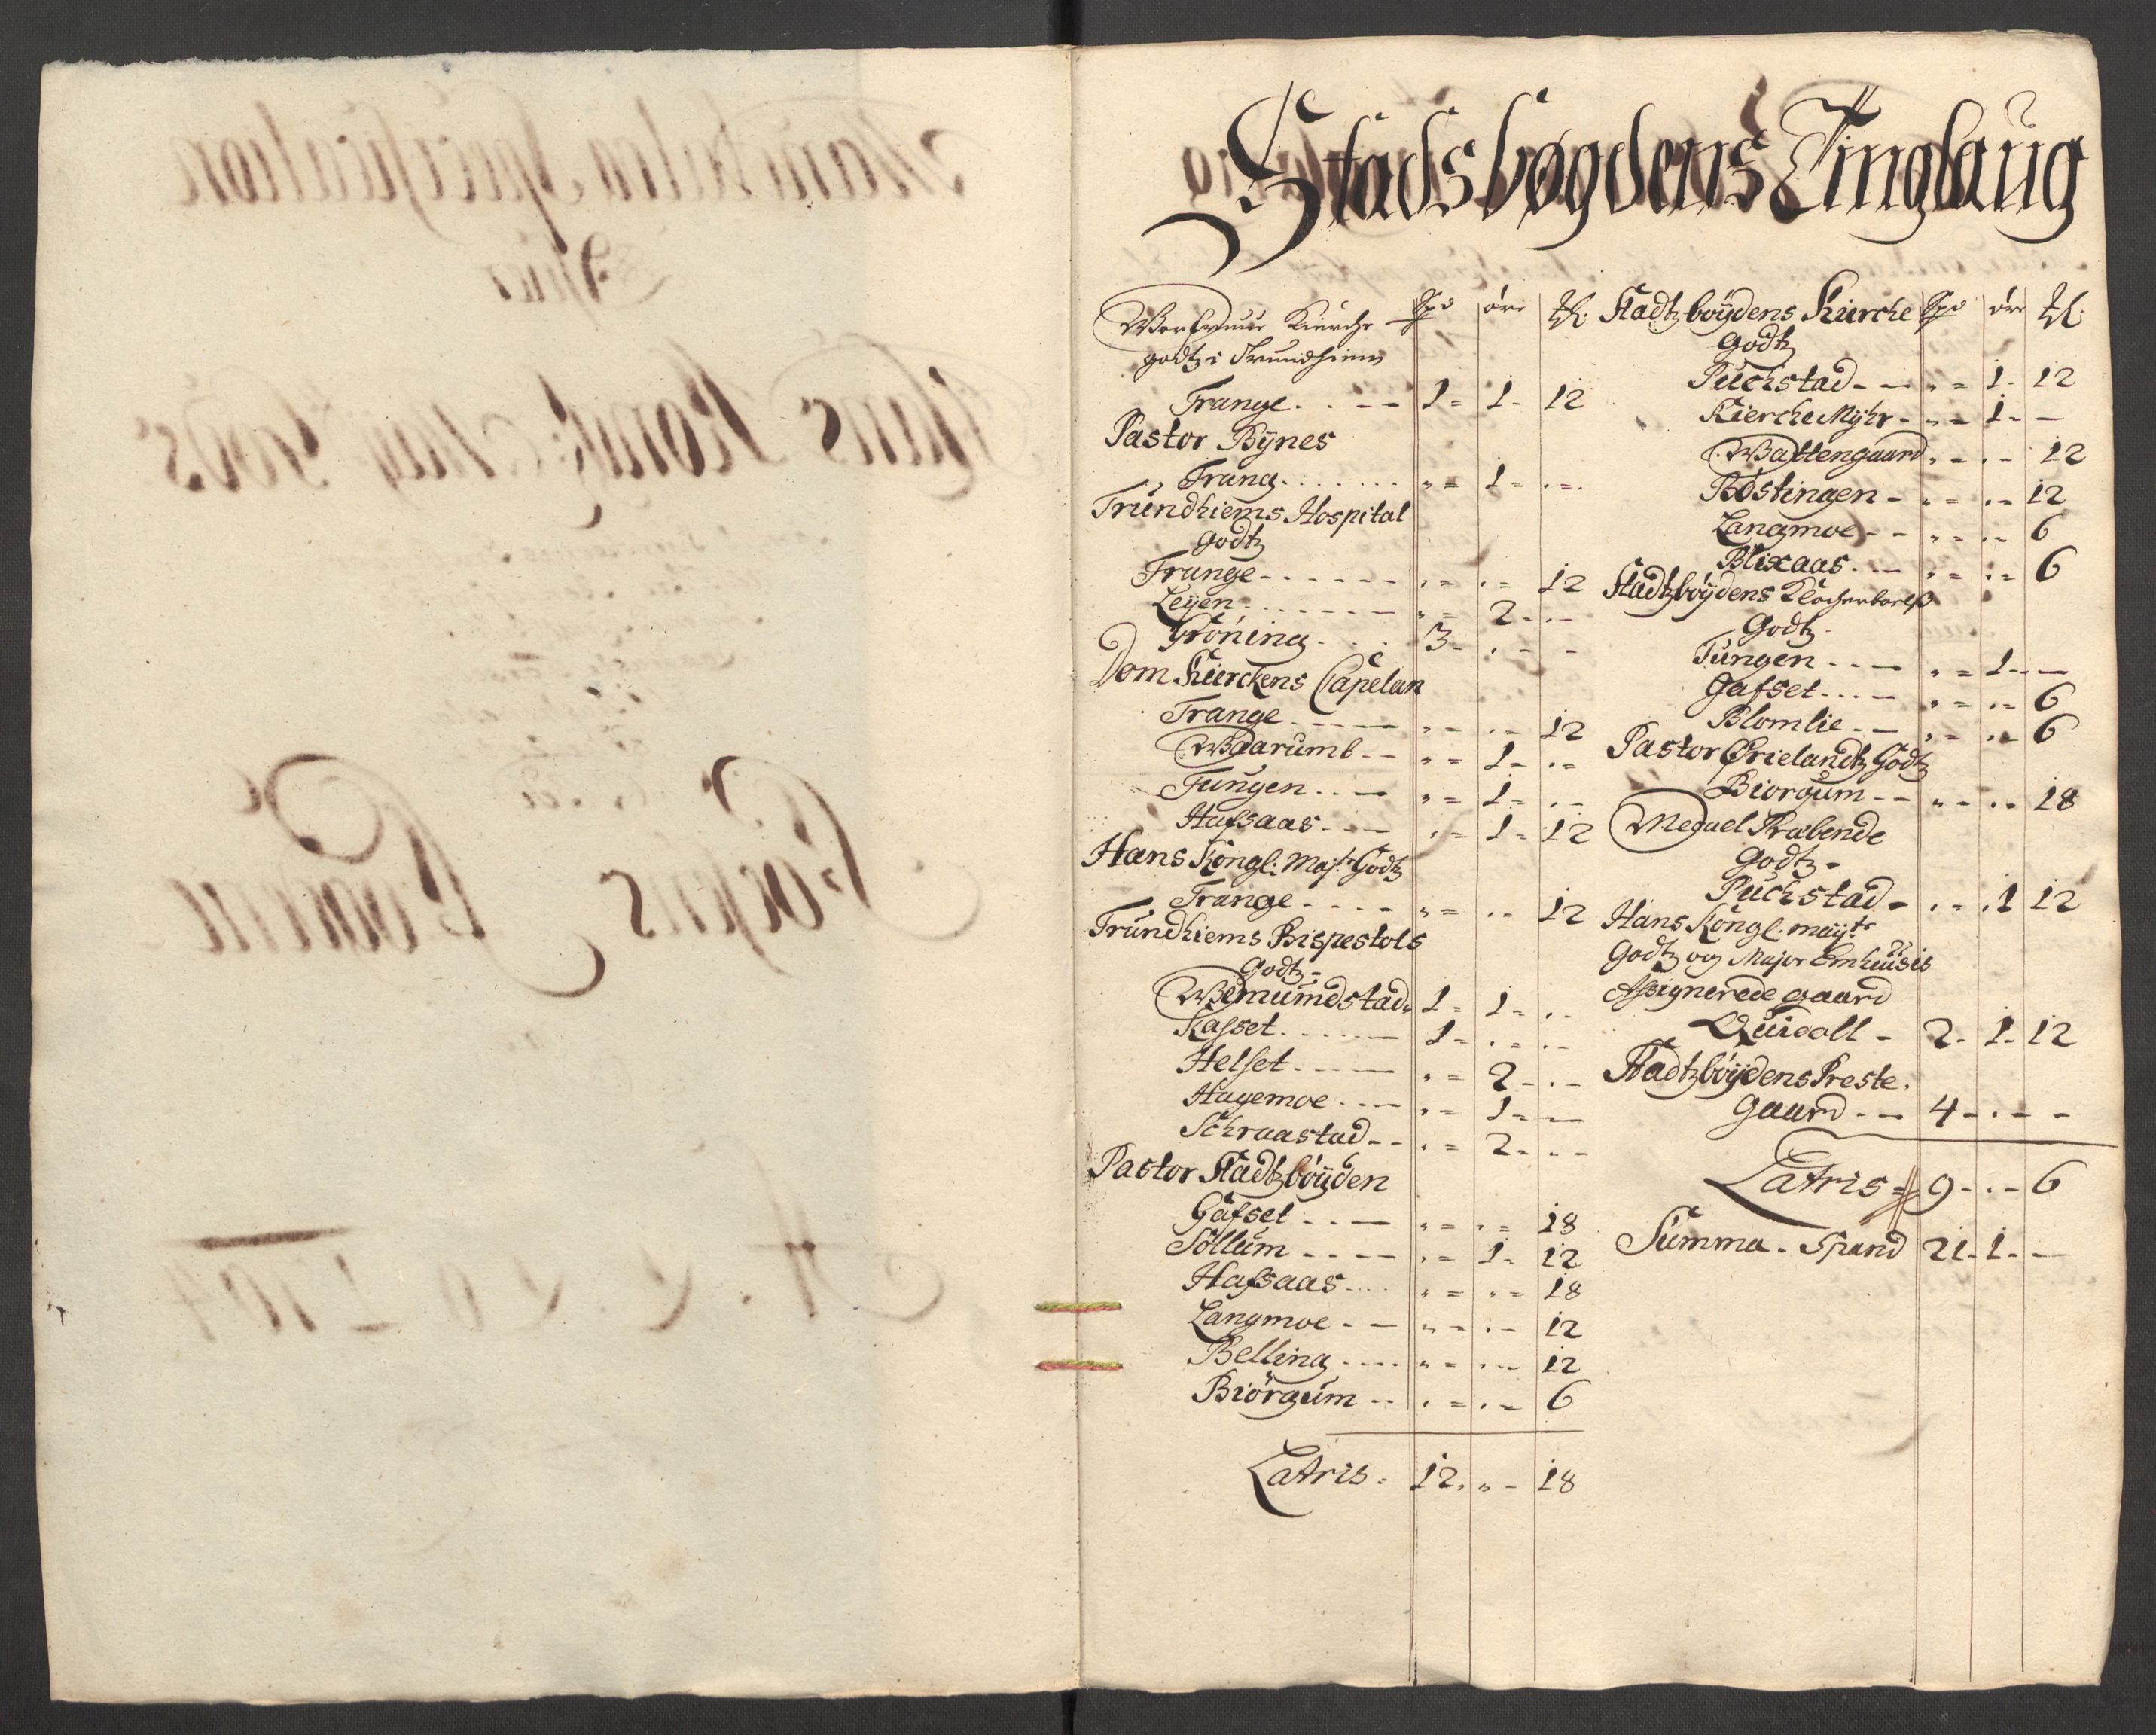 Stadsbøgdens Tinglaug
Worfrue Kierche Spd øre tl:
godtz i Trundhiem
Trange. . . -- 1 = 1 - 12
Pastor Bÿnes
Trang. . . . . . . „ = 1 = . = .
Trundhiems Hospital
Godtz
Trange - - - - - - . = . = 12
Leÿen - - - - - - „ = 2 - . -
Gröning. . . . 3 - . - -
Dom Kierckens Capelan
Trange - - - - - „ - . - 12
Waarumb - - „ = 1 - . =
Tungen . . - „ = 1 - . -
Hafsaas - - - . = 1 - 12
Hans Kongl: Maj:ts Godtz
Trange - - - - „ = . . 12
Trundhiems Bispestols
Godtz -
Wemundstad - 1 = 1 = . .
Kasset . . . . . . 1 - . = . -
Helset - - - - . = 2 - . -
Hagemoe . . - . = 1 - —
Schraastad - - . = 2 - . -
Pastor Stadtzböÿden
Gafset . . - „ = . = 18
Sollum - - - - . = 1 - 12
Hafsaas . . . . „ = . = 18
Langmoe - — „ - . - 12
Belling . . . . „ = . - 12
Biörgum . . . = . - 6
Latris = 12. „ - 18
Stadtzböÿdens Kierche Spd øre tl:
Godtz
Puchstad - — „ = 1 - 12
Kierche Mÿhr - „ = 1 - —
Wattengaard „ - . - 12
Röstingen - „ = . - 12
Langmoe - - „ = . - 6
Blixaas . . - „ = . = 6
Stadtzböÿdens Klocherborlß
Godtz
Tungen . . — „ = 1 - —
Gafset . . . - „ = . - 6
Blomlie - - „ = . - 6
Pastor Ørielandtz Godtz
Biorgum - - „ - . . 18
Meduel Præbende
Godtz -
Puchstad - . - . 1 12
Hans Kongl: maÿ:ts
Godtz og Major Emhusis
Assignerede gaard
Quidall - 2 - 1 - 12
Stadtzböÿdens Preste-
gaard - — 4 - . - -
Latris = 9 - . - 6
Summa - Spand 21 - 1 - —